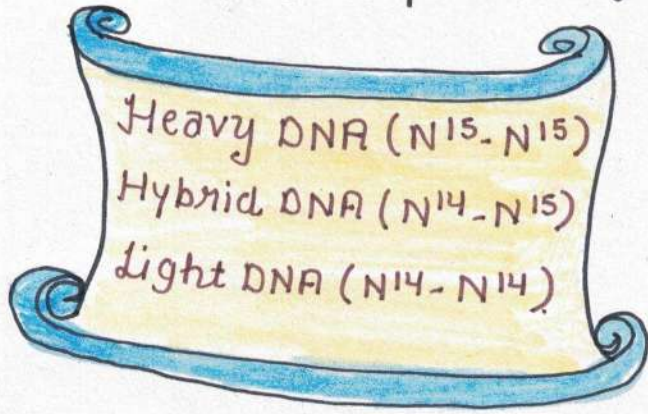 Heavy DNA (N15-N15)
Hybrid DNA (N14-N15)
Light DNA (N14-N14)